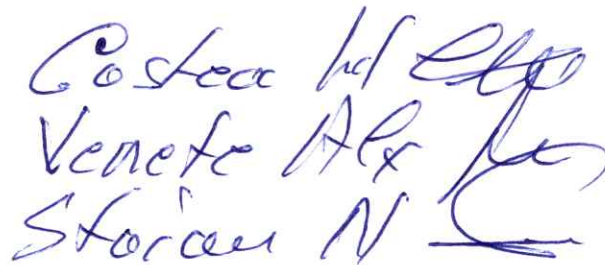 Costea
Venete Alex
Stoian N